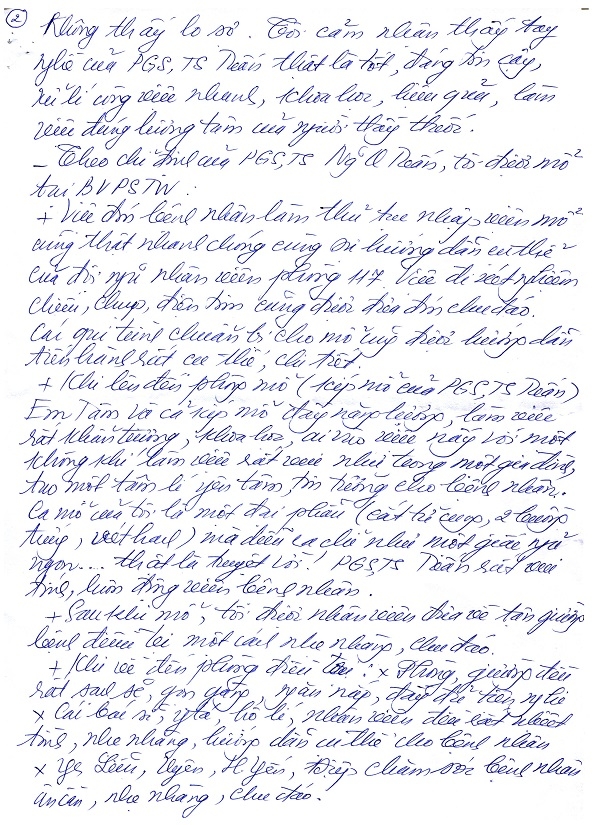 2
Không thấy lo sợ. Tôi cảm nhận thấy tay
nghề của PGS, TS Toán thật là tốt, đáng tin cậy,
xử lí công việc nhanh, khoa học, hiệu quả, làm
việc đúng lương tâm của người thầy thuốc.
- Theo chỉ định của PGS, TS Ng Q Toán, tôi được mổ
tại BVPSTW:
+ Việc đón bệnh nhân làm thủ tục nhập viện mổ
cũng thật nhanh chóng cùng sự hướng dẫn cụ thể
của đội ngũ nhân viên phòng 117. Việc đi xét nghiệm
chiếu, chụp, điện tim cũng được đưa đón chu đáo.
Cái qui trình chuẩn bị cho mổ cũng được hướng dẫn
tiến hành rất cụ thể, chi tiết
+ Khi lên đến phòng mổ (kíp mổ của PGS, TS Toán)
Em Tâm và cả kíp mổ đầy năng lượng, làm việc
rất khẩn trương, khoa học, ai vào việc nấy với một
không khí làm việc rất vui như trong một gia đình,
tạo một tâm lí yên tâm, tin tưởng cho bệnh nhân.
Ca mổ của tôi là một đại phẫu (cắt tử cung, 2 buồng
trứng, vét hạch) mà diễn ra chỉ như một giấc ngủ
ngon... thật là tuyệt vời! PGS, TS Toán rất vui
tính, luôn động viên bệnh nhân.
+ Sau khi mổ, tôi được nhân viên đưa về tận giường
bệnh điều trị một cách nhẹ nhàng, chu đáo.
+ Khi về đến phòng điều trị: x Phòng, giường đều
rất sạch sẽ, gọn gàng, ngăn nắp, đầy đủ tiện nghi
x Các bác sĩ, y tá, hộ lí, nhân viên đều rất nhiệt
tình, nhẹ nhàng, hướng dẫn cụ thể cho bệnh nhân
x Liễu, Uyên, H. Yến, Điệp chăm sóc bệnh nhân
ân cần, nhẹ nhàng, chu đáo.